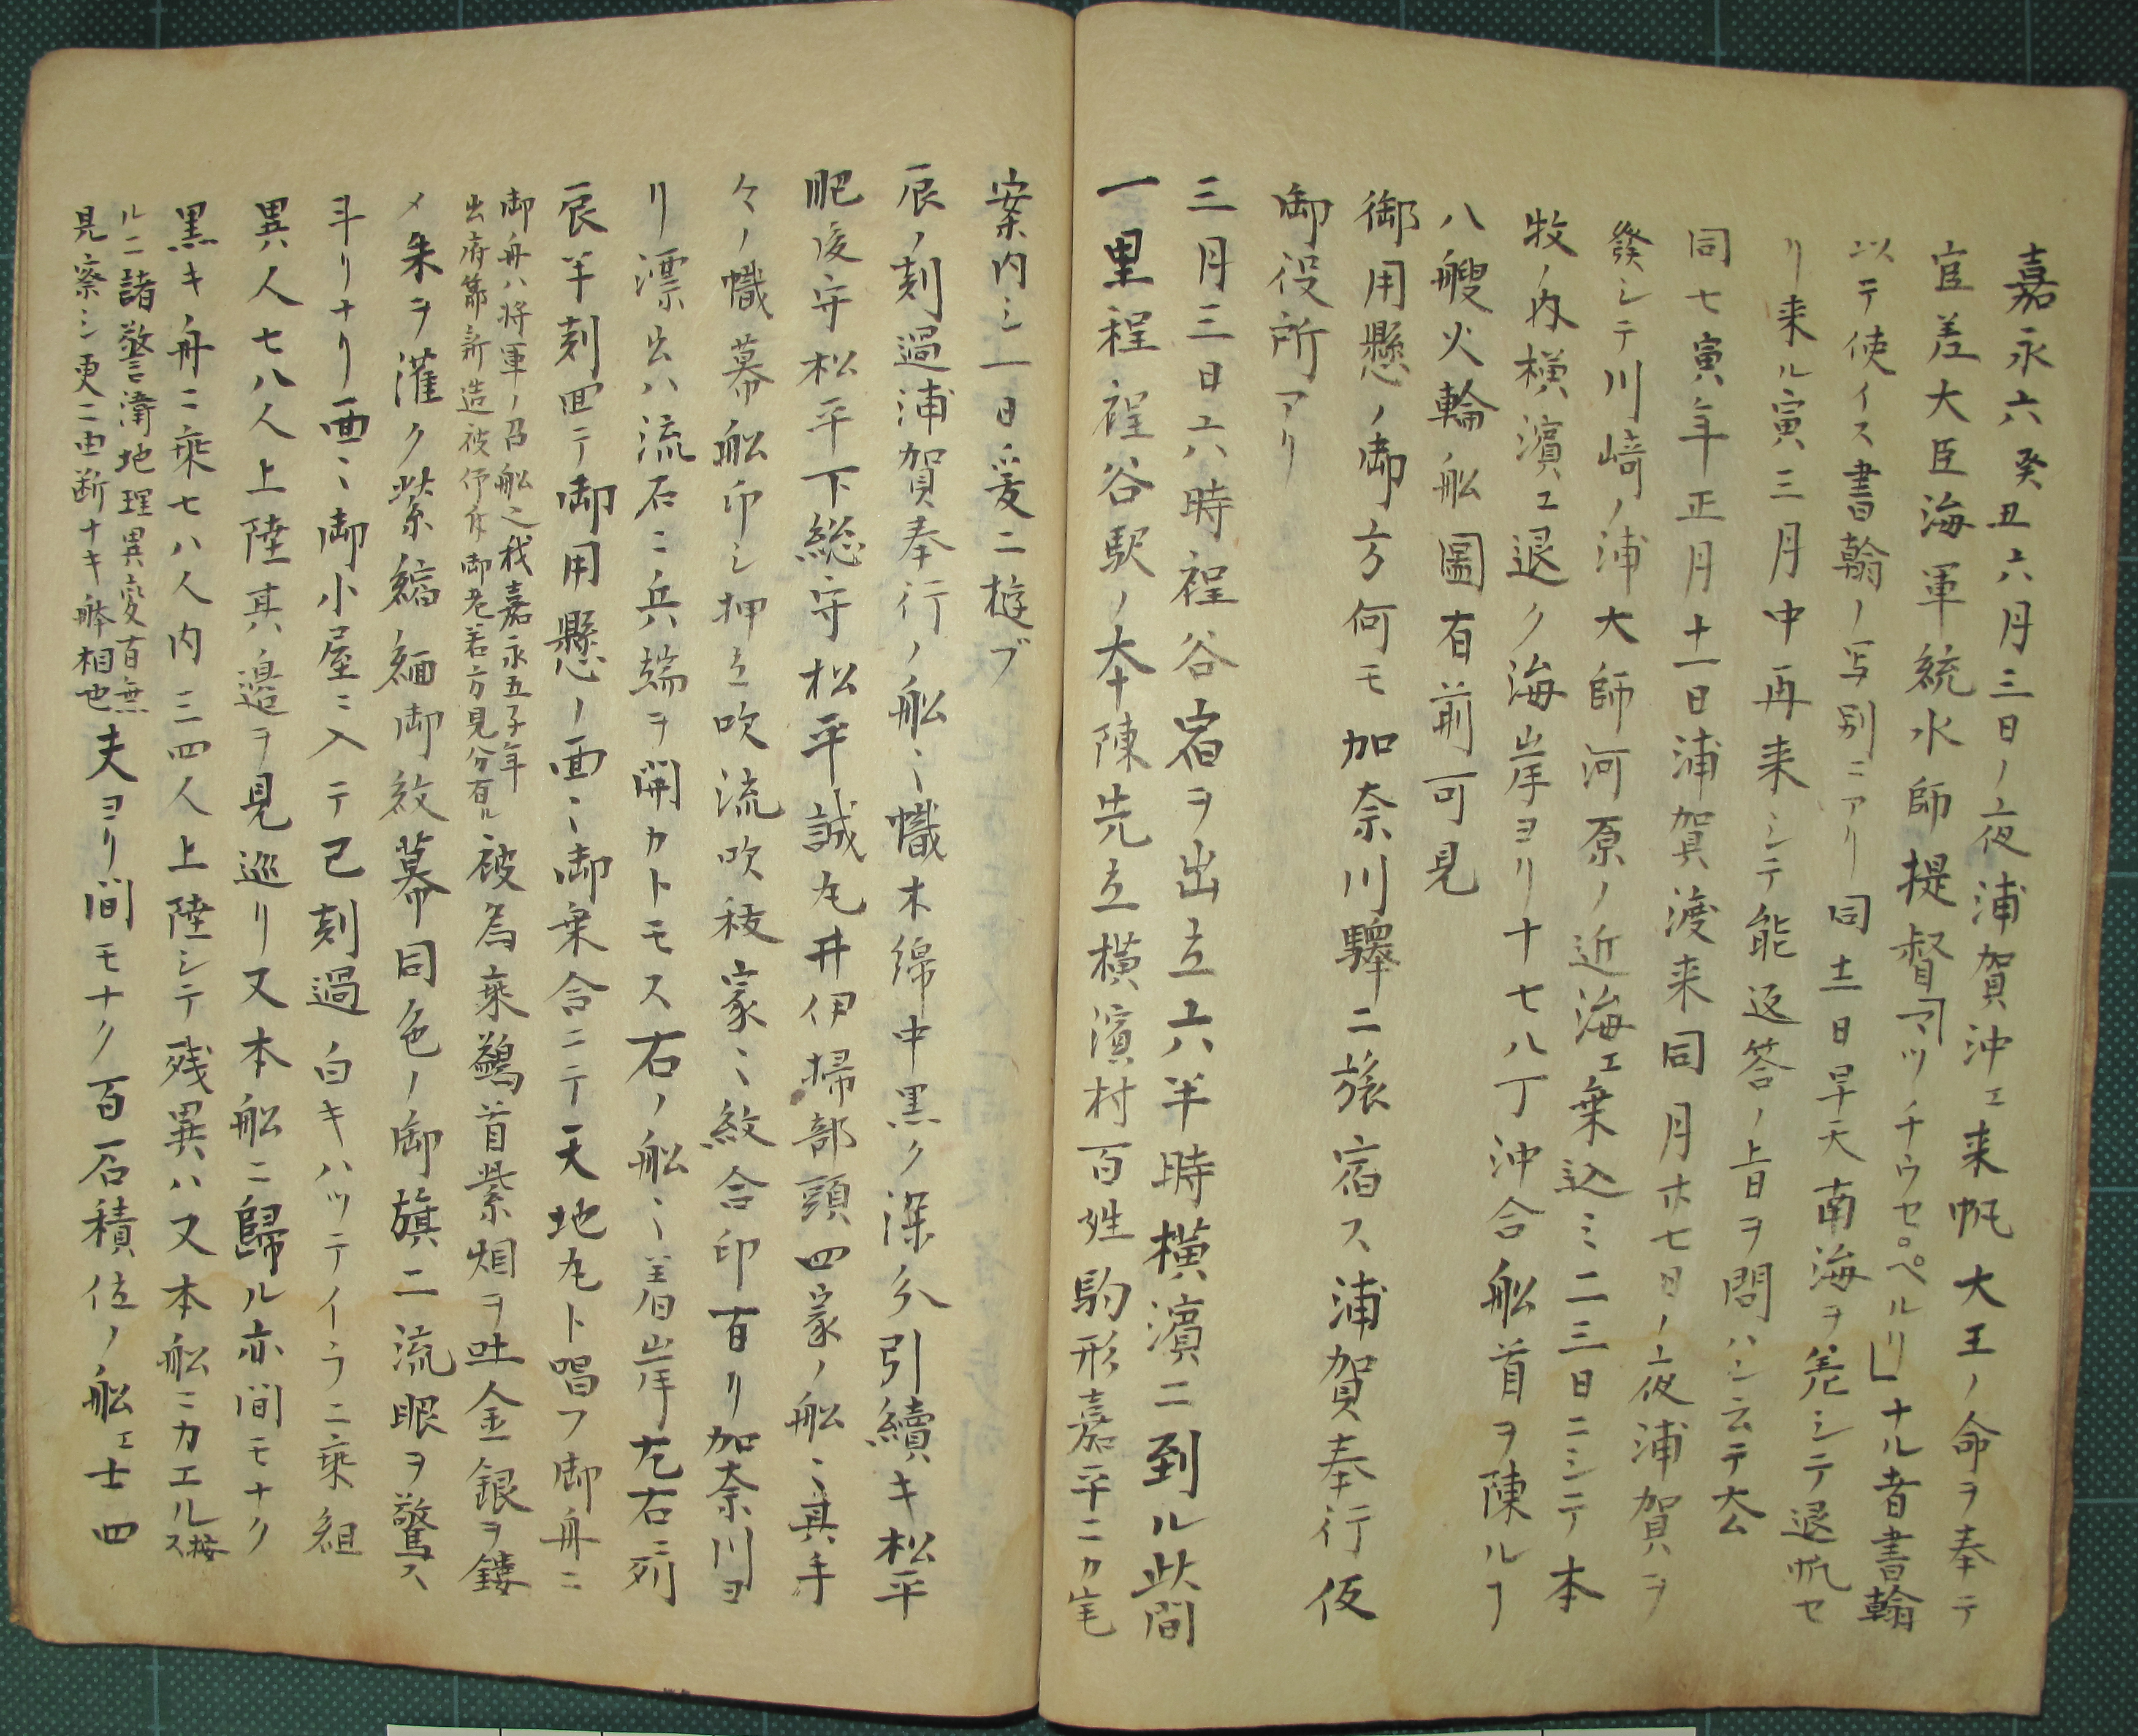 嘉永六癸丑六月三日ノ夜浦賀沖エ来帆大王ノ命ヲ奉テ
宦差大臣海軍統水師提督「マツチウセ。ペルリ」ナル者書翰
以テ使イス書翰ノ写別ニアリ同十二日早天南海ヲ差シテ退帆セ
リ来ル寅三月中再来シテ能返答ノ上旨ヲ問ハン云テ去
同七寅年正月十一日浦賀渡来同月廿七日ノ夜浦賀ヲ
發シテ川崎ノ浦大師河原ノ近海エ乗込ミ二三日ニシテ本
牧ノ内横濱エ退ク海岸ヨリ十七八丁沖合船首ヲ陳ルフ
八艘火輪船圖有前可見
御用懸ノ御方何モ加奈川驛ニ旅宿ス浦賀奉行仮
御役所アリ
三月三日六時程谷宿ヲ出立六半時横濱ニ到ル此間
一里程程谷駅ノ本陳先立横濱村百姓駒形嘉平ニカ宅
案内シ一日爰ニ遊ブ
辰ノ刻過浦賀奉行ノ船ニ幟木綿中黒ク深分引續キ松平
肥後守松平下総守松平誠丸井伊掃部頭四家ノ船ニ其手
々ノ幟幕船印シ押立吹流吹秡家ニ紋合印有リ加奈川ヨ
リ漂出ハ流石ニ兵端ヲ開カトモス右ノ船ニ着岸左右ニ列
辰半刻回テ御用懸ノ面ニ御乗合ニテ天地丸ト唱フ御舟ニ
御舟ハ将軍ノ召船之我嘉永五子年
出府節新造被仰付御老若方見分有ル
被為乗鷁首紫烟ヲ吐金銀ヲ鏤
メ朱ヲ灌ク紫縮緬御紋幕同色ノ御旗二流眼ヲ驚ス
斗リナリ面ニ御小屋ニ入テ已刻過白キハツテイラニ乗組
異人七八人上陸其邉ヲ見巡リ又本船ニ歸ル亦間モナク
黒キ舟ニ乗七八人内三四人上陸シテ残異ハ又本船ニカエル按ス
ルニ諸警衛地理異変有無
見察シ更ニ由断ナキ躰相也
夫ヨリ間モナク百石積位ノ船エ士四